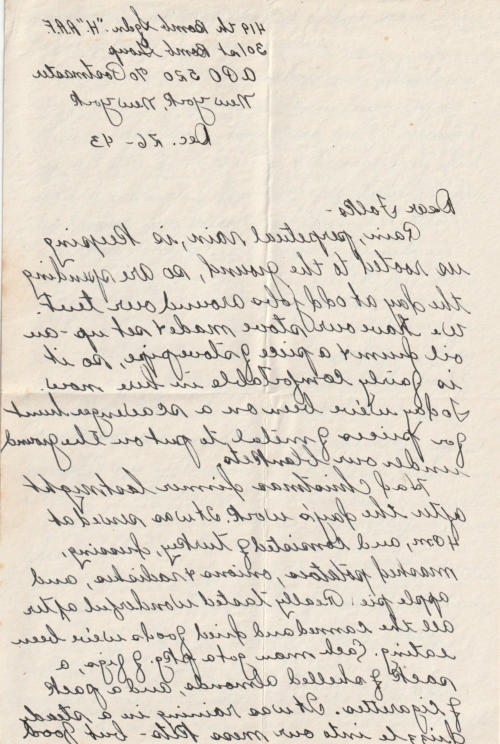 419th Bomb Sqdn. "H" A.A.F.
301st Bomb Group
APO 520 % Postmaster
New York, New York
Dec. 26-43
Dear Folks-
Rain, perpetual rain, is keeping
us rooted to the ground, so are spending
the day at odd jobs around our tent.
We have our stove made & set up-an
oil drum & a piece of stovepipe, so it
is fairly comfortable in here now.
Today we've been on a scavenger hunt
for pieces of metal to put on the ground
under our blankets.
Had Christmas dinner last night
after the day's work. It was served at
4 PM, and consisted of turkey, dressing,
mashed potatoes, onions & radishes, and
apple pie. Really tasted wonderful after
all the canned and dried goods we've been
eating. Each man got a pkg. of figs, a
pack of shelled almonds, and a pack
of cigarettes. It was raining in a steady
drizzle into our mess kits- but good